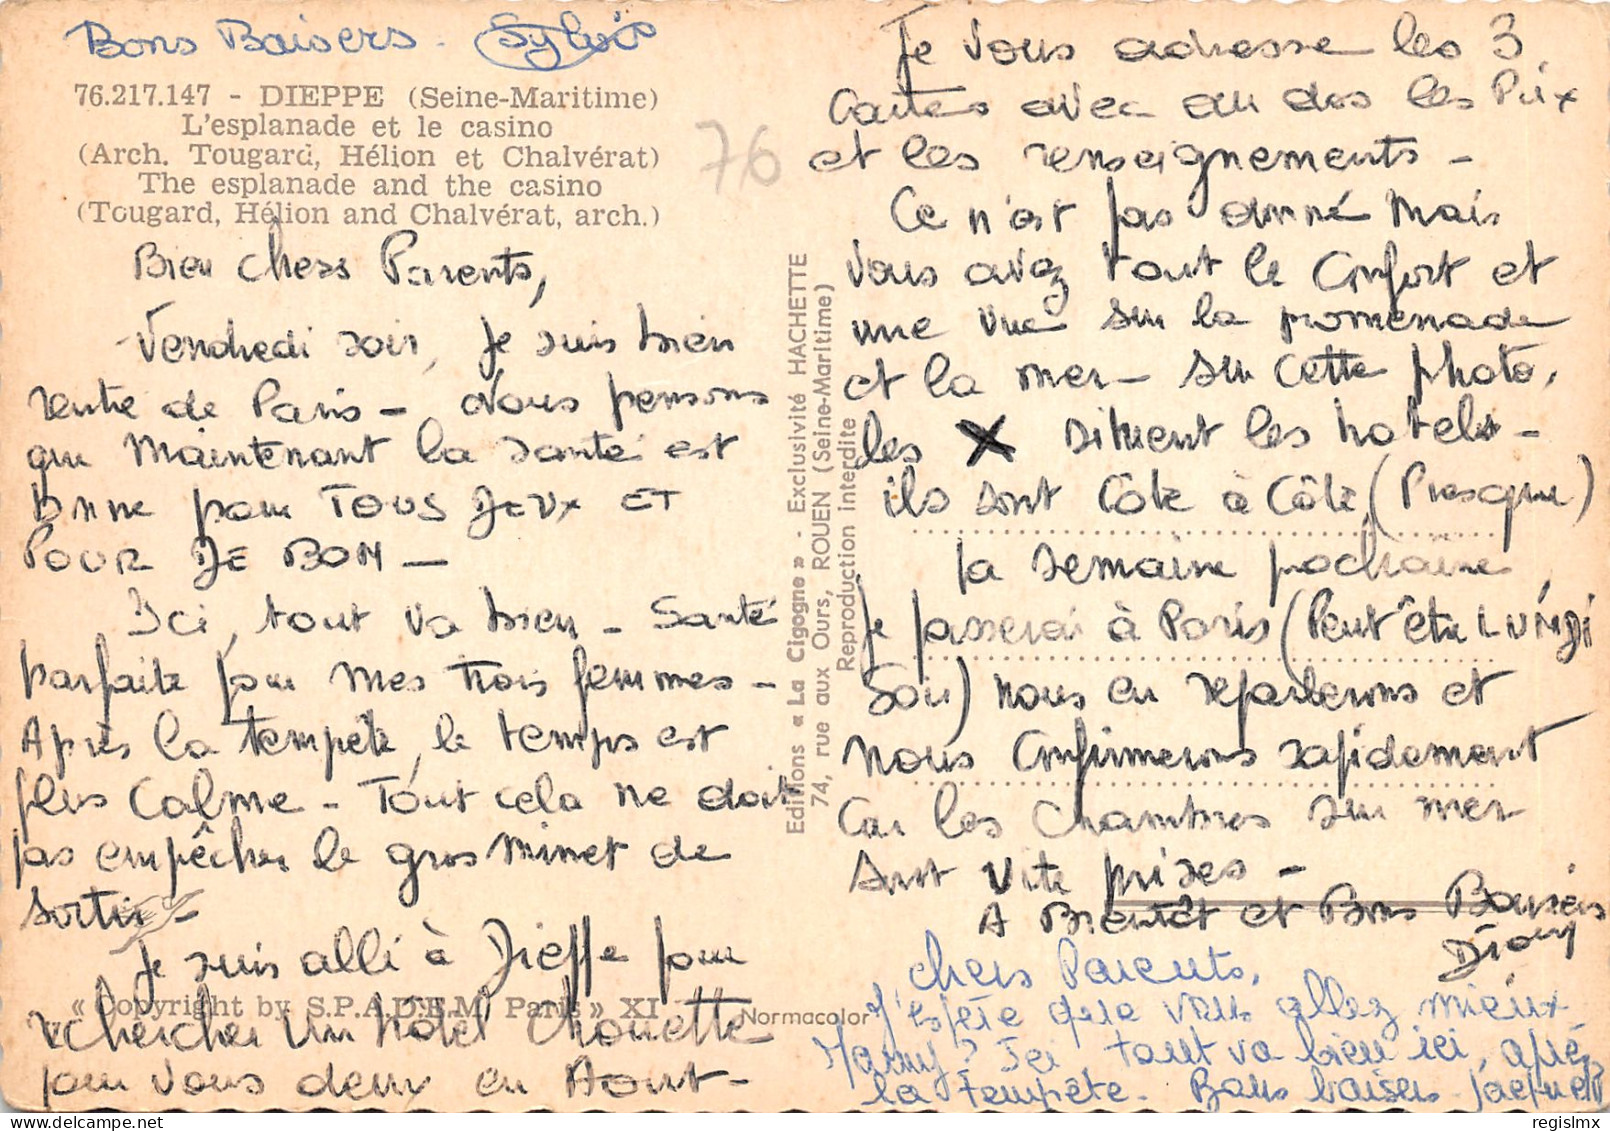 Bons Baisers. Sylvie
76.217.147 - DIEPPE (Seine-Maritime)
L'esplanade et le casino
(Arch. Tougard, Hélion et Chalvérat)
The esplanade and the casino
(Tougard, Hélion and Chalvérat, arch.)
76
Bien chers Parents,
Vendredi soir, je suis bien
rentré de Paris - Nous pensons
que maintenant la santé est
bonne pour TOUS DEUX ET
POUR DE BON -
Ici, tout va bien - Santé
parfaite pour mes trois femmes -
Après la tempête, le temps est
plus calme - Tout cela ne doit
pas empêcher le gros minet de
sortir -
Je suis allé à Dieppe pour
rechercher un hôtel chouette
pour vous deux en Aout -
« Copyright by S.P.A.D.E.M. Paris » XI
Normacolor
Editions « La Cigogne » - Exclusivité HACHETTE
74, rue aux Ours, ROUEN (Seine-Maritime)
Reproduction interdite
Je vous adresse les 3
cartes avec au dos les Prix
et les renseignements -
Ce n'est pas donné mais
vous avez tout le confort et
une vue sur la promenade
et la mer - sur cette photo,
les X situent les hotels -
ils sont côte à côte (Presque)
la semaine prochaine,
je passerai à Paris (Peut être LUNDI
Soir) nous en reparlerons et
nous confirmerons rapidement
car les chambres sur mer
sont vite prises -
A Bientôt et Bons Baisers
Chers Parents,
J'espère que vous allez mieux
Mamy? Ici tout va bien ici, après
la tempête. Bons baisers Jacquel
regismx